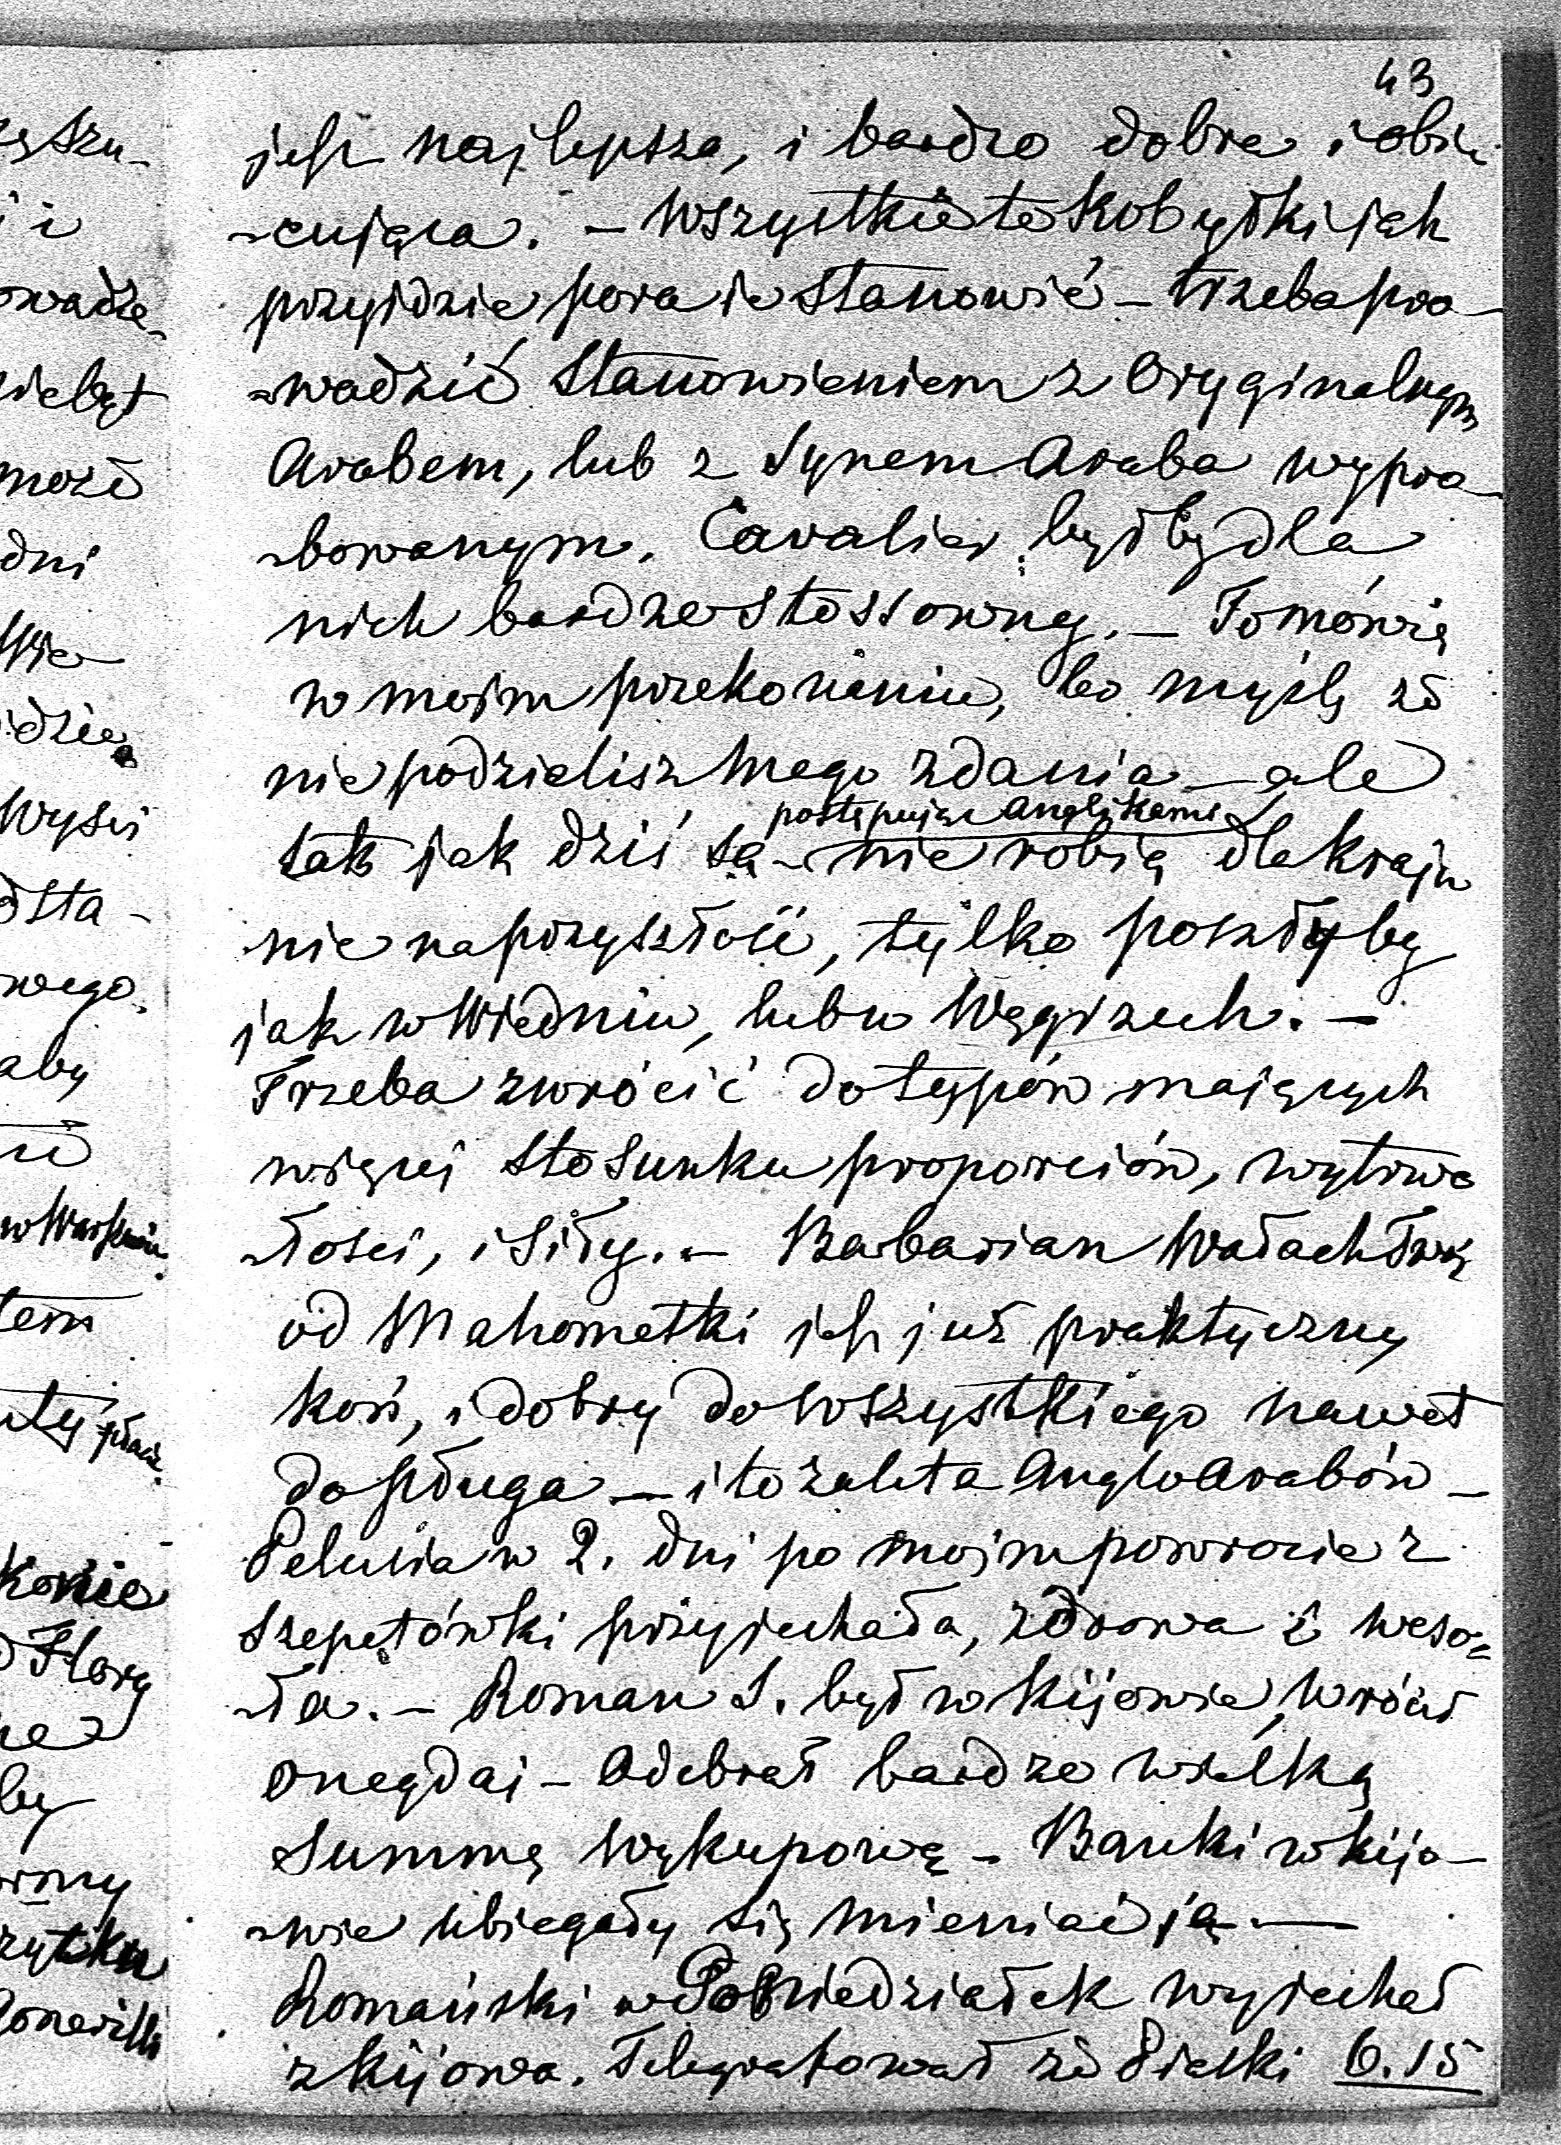 43
jest najlepsza, i bardzo dobra i obie-
-cująca. – Wszystkie te Kobyłki jak
przyjdzie pora je Stanowić – trzeba pro-
-wadzić Stanowieniem z Oryginalnym
Arabem, lub z Synem Araba wypro-
-bowanym. Cavalier byłby dla
nich bardzo stossowny. – To mówię
w moim przekonaniu, bo myślę że
nie podzielisz mego zdania – ale
postępując Anglikami
tak jak dziś są – nie robią dla kraju
nic na przyszłość, tylko poszłyby
jak w Wiedniu, lub w Węgrzech. –
Trzeba zwrócić do typów mających
więcej Stosunku proporción, wytrwa
-łości, i Siły. – Barbarian Wałach
od Mahometki jest już praktyczny
koń, i dobry do wszystkiego nawet
do pługa – i to zaleta Anglo Arabów –
Pelusia w 2. dni po moim powrocie z
Szepetówki przyjechała, zdrowa i weso-
-ła. – Roman S. był w Kijowie, wrócił
onegdaj – Odebrał bardzo wielką
Summę Wykupową – Banki w Kijo-
-wie ubiegały się mieniać ją. –
Romański w Poniedziałek wyjechał
z Kijowa. Telegrafował że 6.15